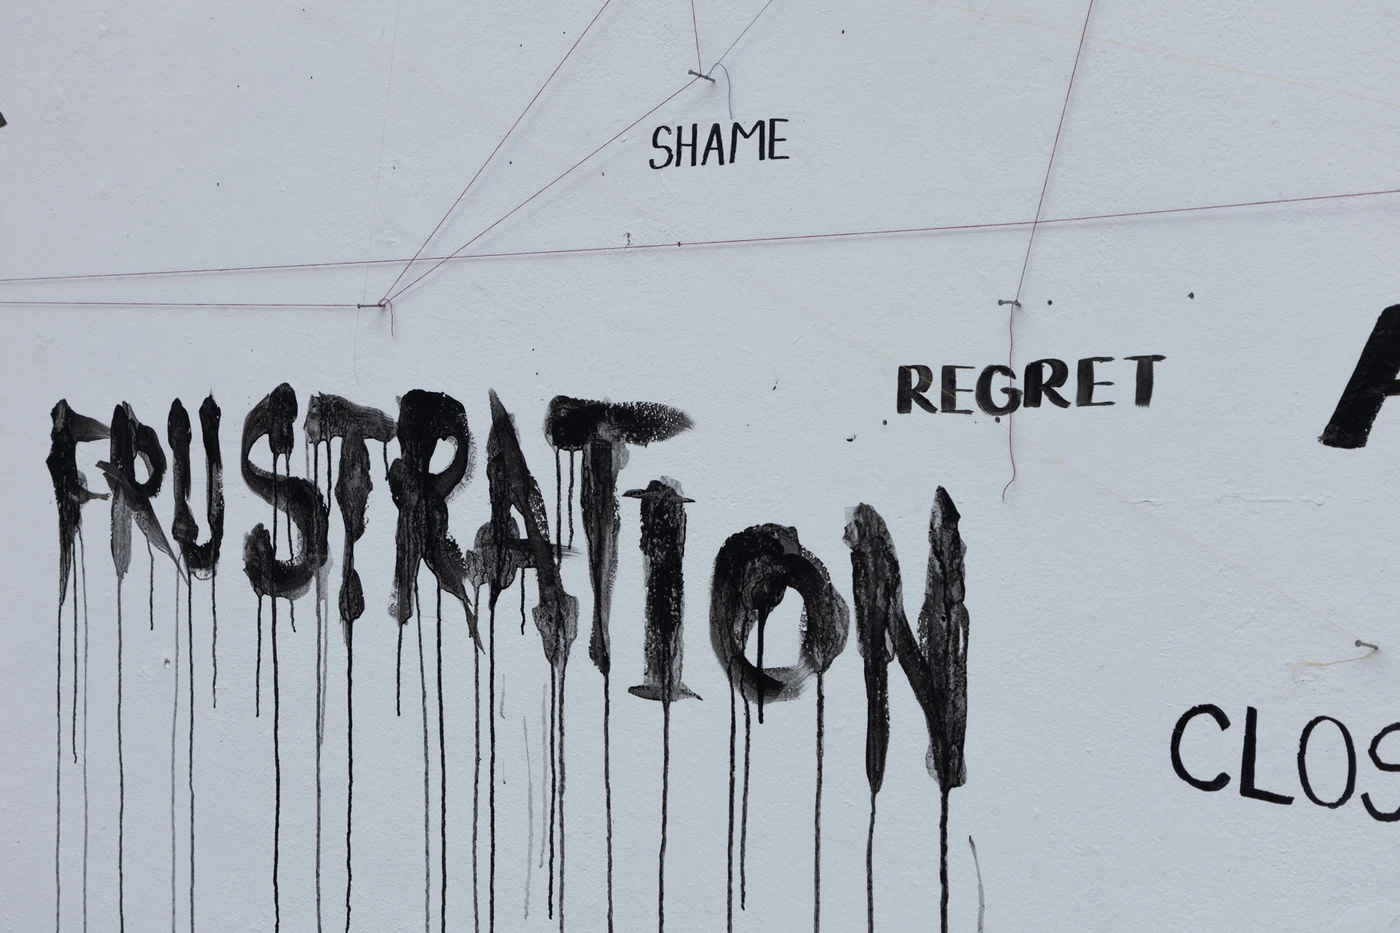 SHAME
REGRET
FRUSTRATION
CLOS